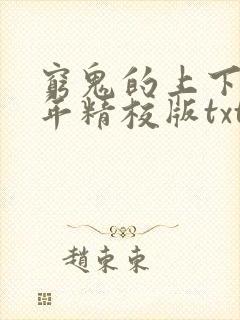 窮鬼的上下
年精校版txt
趙東東